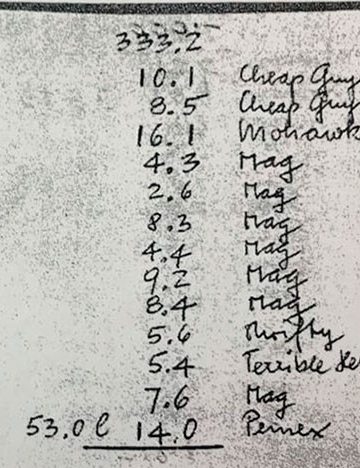 333.2
10.1 Cheap Guy
8.5 Cheap Guy
16.1 Mohawk
4.3 Mag
2.6 Mag
8.3 Mag
4.4 Mag
9.2 Mag
8.4 Mag
5.6 Thrifty
5.4 Terrible He
7.6 Mag
53.0 l 14.0 Pemex